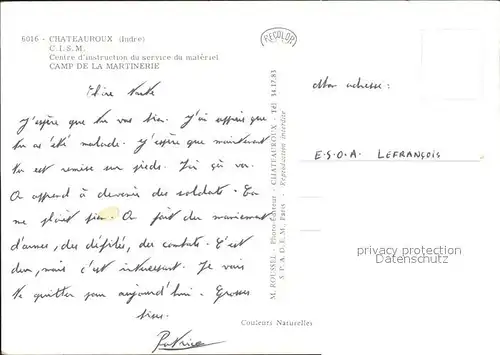 6016 - CHATEAUROUX (Indre)
C.I.S.M.
Centre d'instruction du service du matériel
CAMP DE LA MARTINERIE
RECOLOR
Chère Tante
J'espère que tu vas bien. J'ai appris que
tu as été malade. J'espère que maintenant
tu est remise sur pieds. Ici ça va.
On apprend à devenir des soldats. Ça
me plaît bien. On fait du maniement
d'armes, des défilés, des combats. C'est
dur, mais c'est intéressant. Je vais
te quitter pour aujourd'hui. Grosses
bises.
Patrice
M. ROUSSEL - Photo-Editeur - CHATEAUROUX - Tél. 34.17.83
S.P.A.D.E.M. Paris - Reproduction interdite
Couleurs Naturelles
Mon adresse:
E.S.O.A. LEFRANÇOIS
privacy protection
Datenschutz